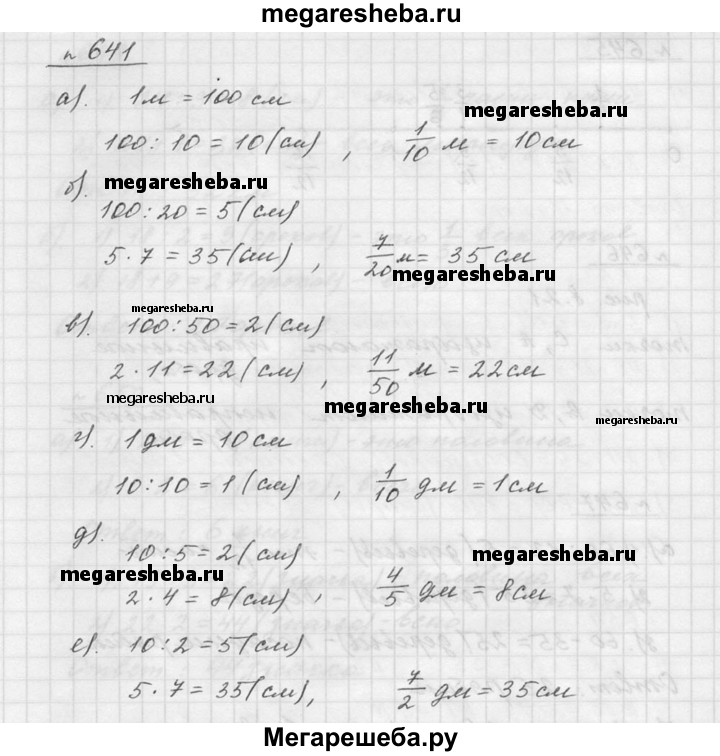 megaresheba.ru
п 641
а). 1м = 100 см
megaresheba.ru
100 : 10 = 10 (см) , 1/10 м = 10 см
б). megaresheba.ru
100 : 20 = 5 (см)
5 · 7 = 35 (см) , 7/20 м = 35 см
megaresheba.ru
megaresheba.ru
в). 100 : 50 = 2 (см)
2 · 11 = 22 (см) , 11/50 м = 22 см
megaresheba.ru
megaresheba.ru
megaresheba.ru
г). 1 дм = 10 см
10 : 10 = 1 (см) , 1/10 дм = 1 см
д). 10 : 5 = 2 (см)
megaresheba.ru
megaresheba.ru
2 · 4 = 8 (см) , 4/5 дм = 8 см
е). 10 : 2 = 5 (см)
5 · 7 = 35 (см) , 7/2 дм = 35 см
Мегарешеба.ру